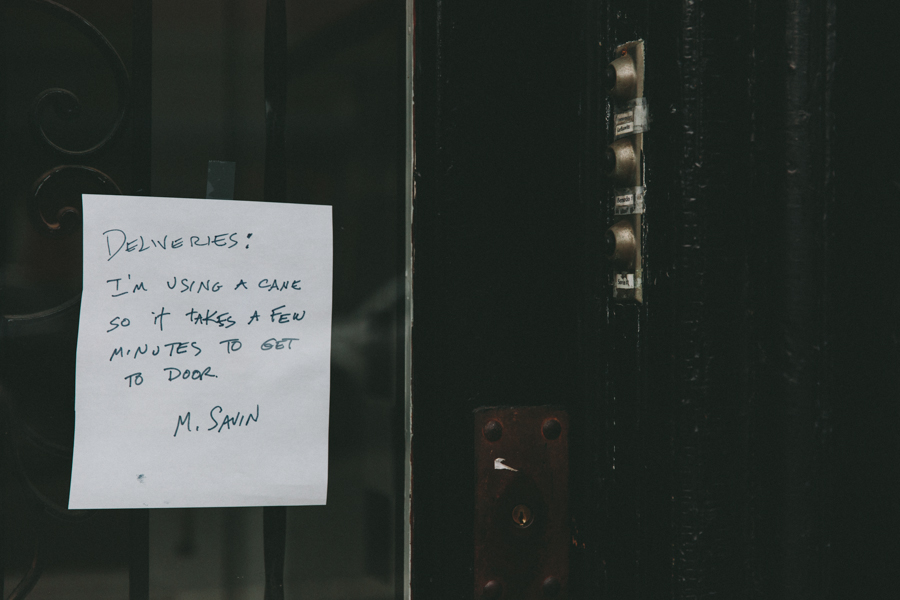 DELIVERIES:
I'M USING A CANE
SO IT TAKES A FEW
MINUTES TO GET
TO DOOR.
M. SAVIN